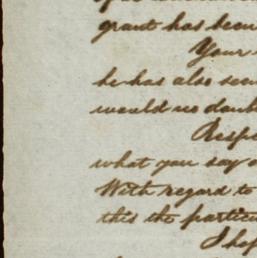 grant has been
Your
he has also
would no doubt
what you say
With regard to
this the particu
I hop